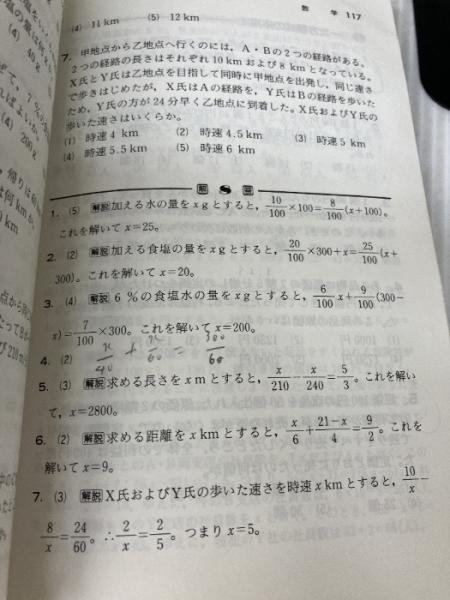 数 学 117
(4) 11 km (5) 12 km
7. 甲地点から乙地点へ行くのには，A・Bの2つの経路がある。
2つの経路の長さはそれぞれ10 kmおよび8 kmとなっている。
X氏とY氏は乙地点を目指して同時に甲地点を出発し，同じ速さ
で歩きはじめたが，X氏はAの経路を，Y氏はBの経路を歩いた
ため，Y氏の方が24分早く乙地点に到着した。X氏およびY氏の
歩いた速さはいくらか。
(1) 時速4 km (2) 時速4.5 km (3) 時速5 km
(4) 時速5.5 km (5) 時速6 km
解 答
1. (5) 解説 加える水の量をx gとすると，10/100×100=8/100(x+100)。
これを解いてx=25。
2. (2) 解説 加える食塩の量をx gとすると，20/100×300+x=25/100(x+
300)。これを解いてx=20。
3. (4) 解説 6％の食塩水の量をx gとすると，6/100x+9/100(300-
x)=7/100×300。これを解いてx=200。
4. (2) x/40+x/60=300/60
5. (3) 解説 求める長さをx mとすると，x/210 x/240=5/3。これを解い
て，x=2800。
6. (2) 解説 求める距離をx kmとすると，x/6+21-x/4=9/2。これを
解いてx=9。
7. (3) 解説 X氏およびY氏の歩いた速さを時速x kmとすると，10/x-
8/x=24/60。∴2/x=2/5。つまりx=5。